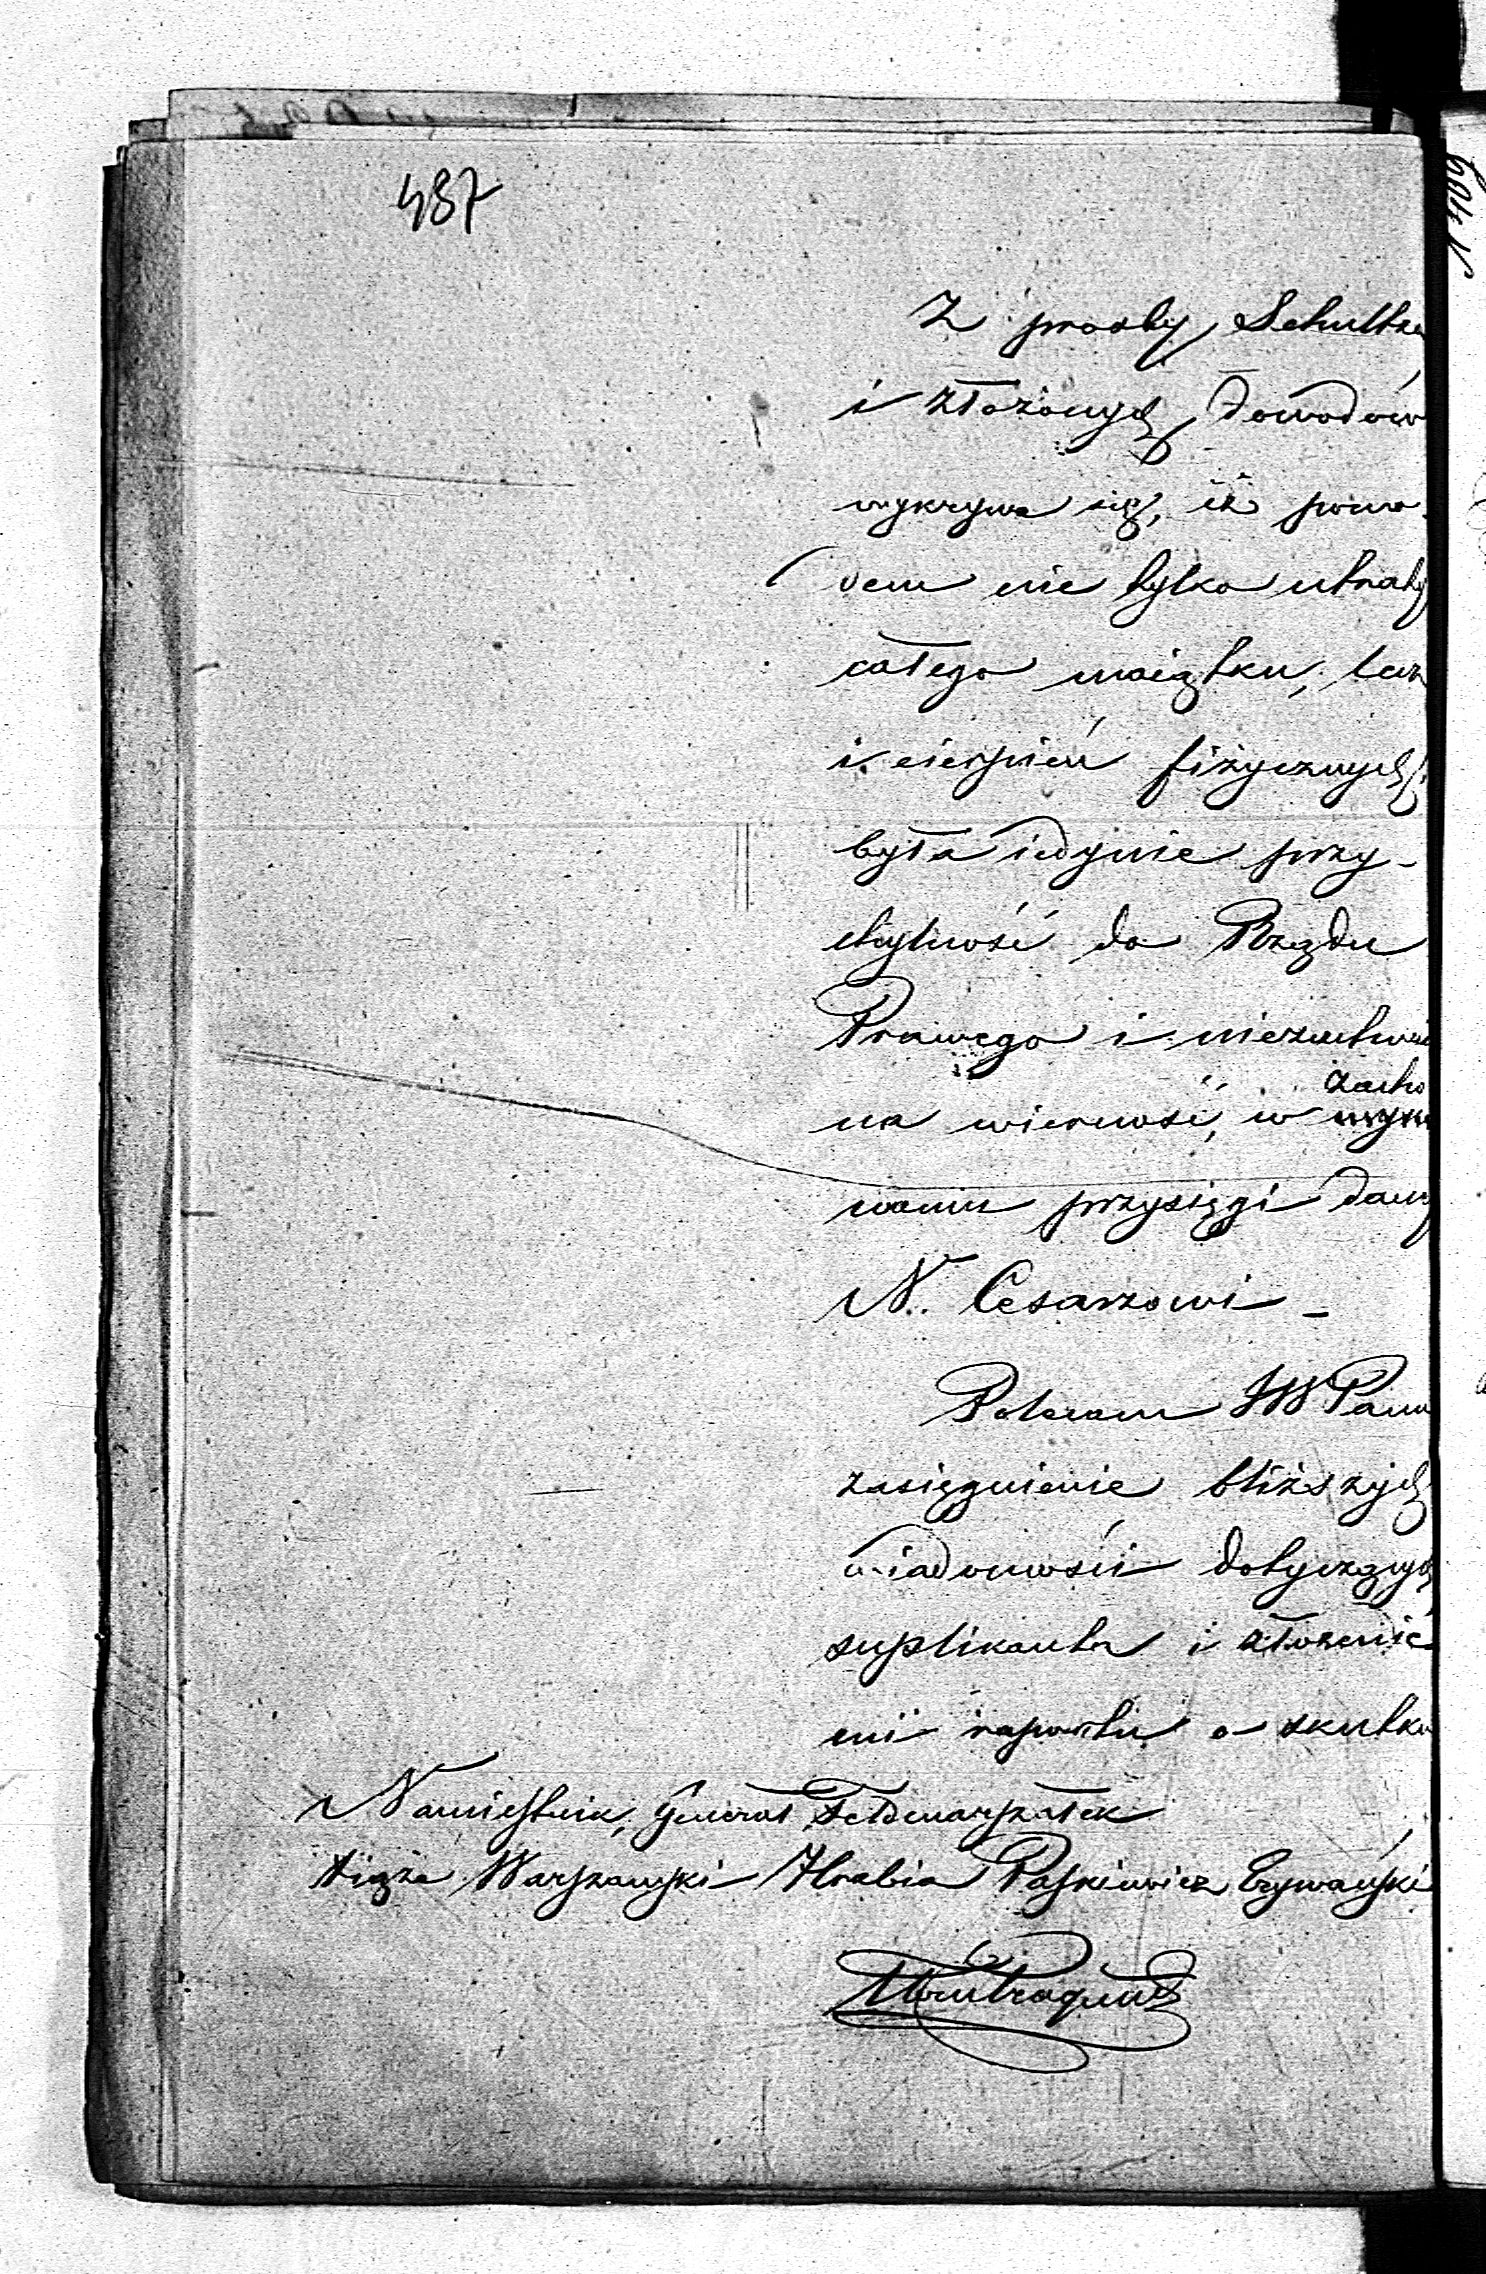 487
Z prośby Schultza
i złożonych dowodów
wykrywa się, iż powo-
dem nie tylko utraty
całego maiątku, lecz
i cierpień fizycznych,
była iedynie przy-
chylność do Rządu
Prawego i niezachwia
na wierność, w zacho
waniu przysięgi daney
N. Cesarzowi –
Polecam JW Panu
zasięgnienie bliższych
wiadomości dotyczących
suplikanta i złożenie
mi raportu o skutku
Namiestnik, Generał Feldmarszałek
Xiąże Warszawski Hrabia Paskiewicz Erywański